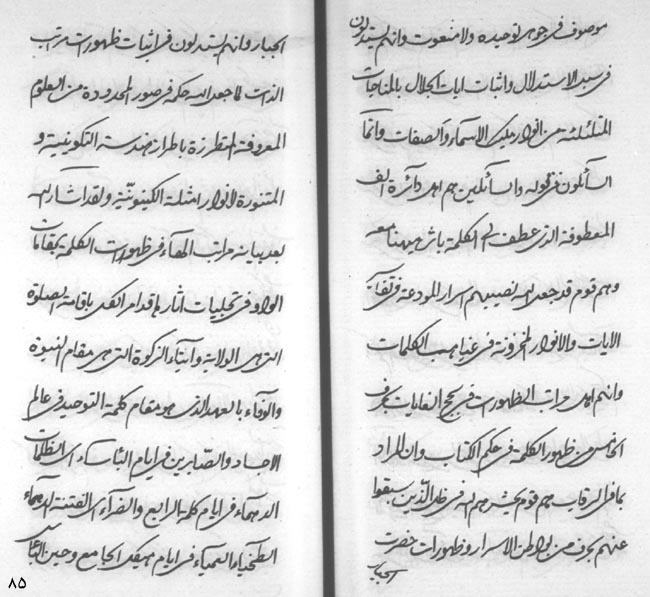 موصوف في جوهر توحيده ولا منعوت وانهم ليستدلون
في سبيل الاستدلال واثبات ايات الجلال بالمناجات
المتلئلئة من انوار مليك الاسماء والصفات وانما
السائلون في قوله والسائلين هم اهل دائرة الف
المعطوفة الذي عطف الى الكلمة باثر هيمنا معه
وهم قوم قد جعل الله نصيبهم اسرار المودعة في
الايات والانوار المخزونة في غياهب الكلمات
وانهم اهل مراتب الظهورات في الغايات بحرف
الخامس من ظهور الكلمة في حكم الكتاب وان المراد
بما في الرقاب هم قوم يحشرهم الله في ظل الذين سبقوا
عنهم بحرف من بواطن الاسرار وظهورات حضرت
الجبار
الجبار وانهم ليستدلون في اثبات ظهورات مراتب
الذات لما جعل الله حكمه في صور المحدودة من العلوم
المعروفة المتطرزة باطراز هندسة التكوينية و
المتنورة لانوار امثلة الكينونية ولقد اشار الله
بعد بيانه مراتب الهاء في ظهورات الكلمة بمقامات
الواو في تجليات اثار باقدام الكل باقامة الصلوة
التي هي الولاية وايتاء الزكوة التي هي مقام النبوة
والوفاء بالعهد الذي هو مقام كلمة التوحيد في عالم
الاحاد والصابرين في ايام الباساء اي الظلمات
الدهماء في ايام كلمة الرابع والضراء اي الفتنة الدهماء
الطخياء العمياء في ايام هيكل الجامع وحين الباس
۸۵